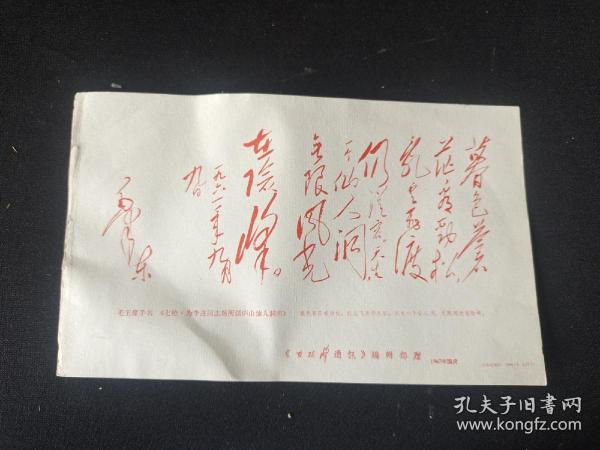 暮色蒼
茫看勁松
亂雲飛渡
仍從容天生
一个仙人洞
無限風光
在險峰。
一九六一年九月
九日
毛澤东
毛主席手书 《七绝·为李进同志题所摄庐山仙人洞照》
暮色苍茫看劲松，乱云飞渡仍从容。天生一个仙人洞，无限风光在险峰。
通讯》编辑部赠 1967年国庆
孔夫子旧书网
www.kongfz.com